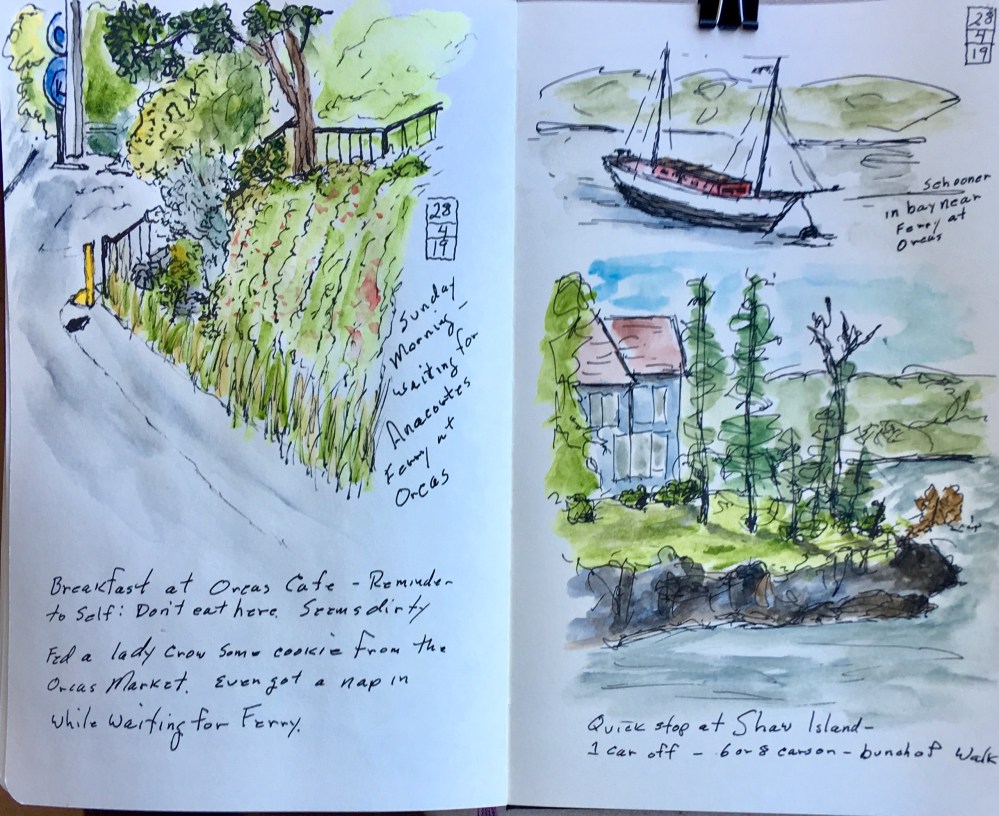 28
4
19
Sunday
Morning -
waiting for
Anacortes
Ferry at
Orcas
Breakfast at Orcas Cafe - Reminder
to Self: Don't eat here. Seems dirty
Fed a lady Crow some cookie from the
Orcas Market. Even got a nap in
while waiting for Ferry.
28
4
19
Schooner
in bay near
Ferry at
Orcas
Quick stop at Shaw Island -
1 car off - 6 or 8 cars on - bunch of walk